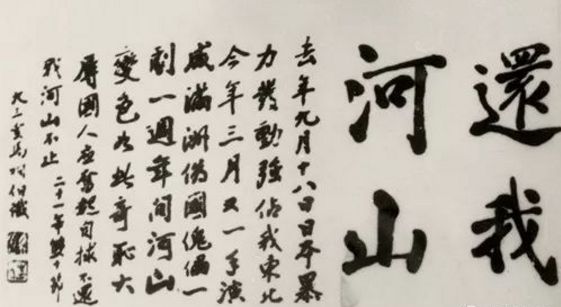 還我
河山
去年九月十八日日本暴
力發動強佔我東北
今年三月又一手演
成滿洲偽國傀儡一
劇一週年間河山
變色如此奇恥大
辱國人應奮起自救不還
我河山不止 二十一年雙十節
九三叟馬相伯識